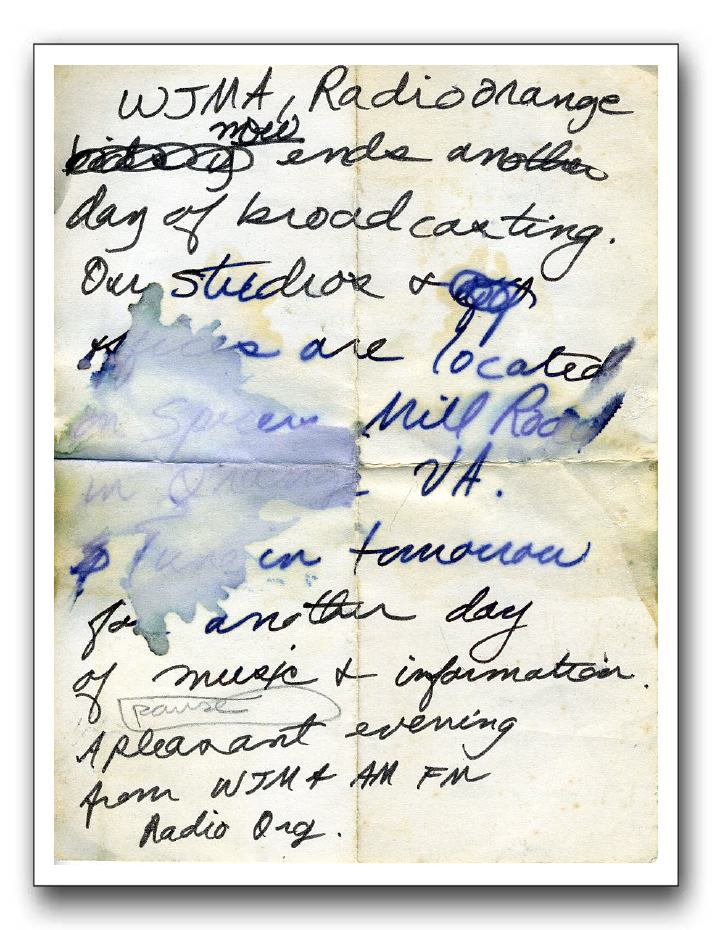 WJMA, Radio Orange
now
ends another
day of broadcasting.
Our studios &
offices are located
on Spicers Mill Road
in Orange VA.
Tune in tomorrow
for another day
of music & information.
pause
A pleasant evening
from WJMA AM FM
Radio Org.